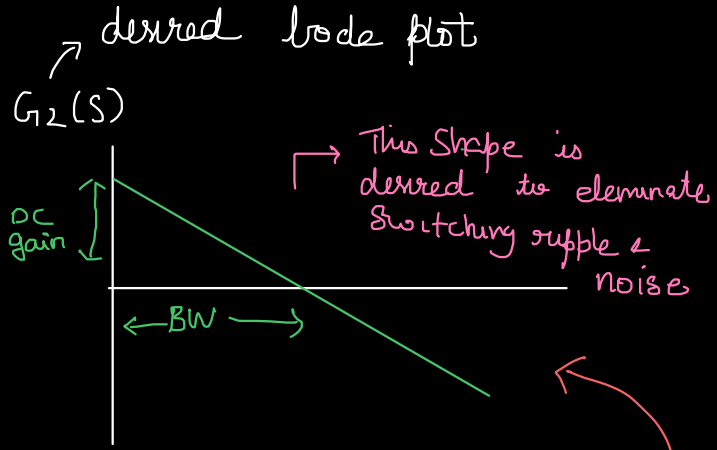 desired bode plot
G2(S)
This Shape is
desired to eleminate
Switching ripple &
noise
DC
gain
BW